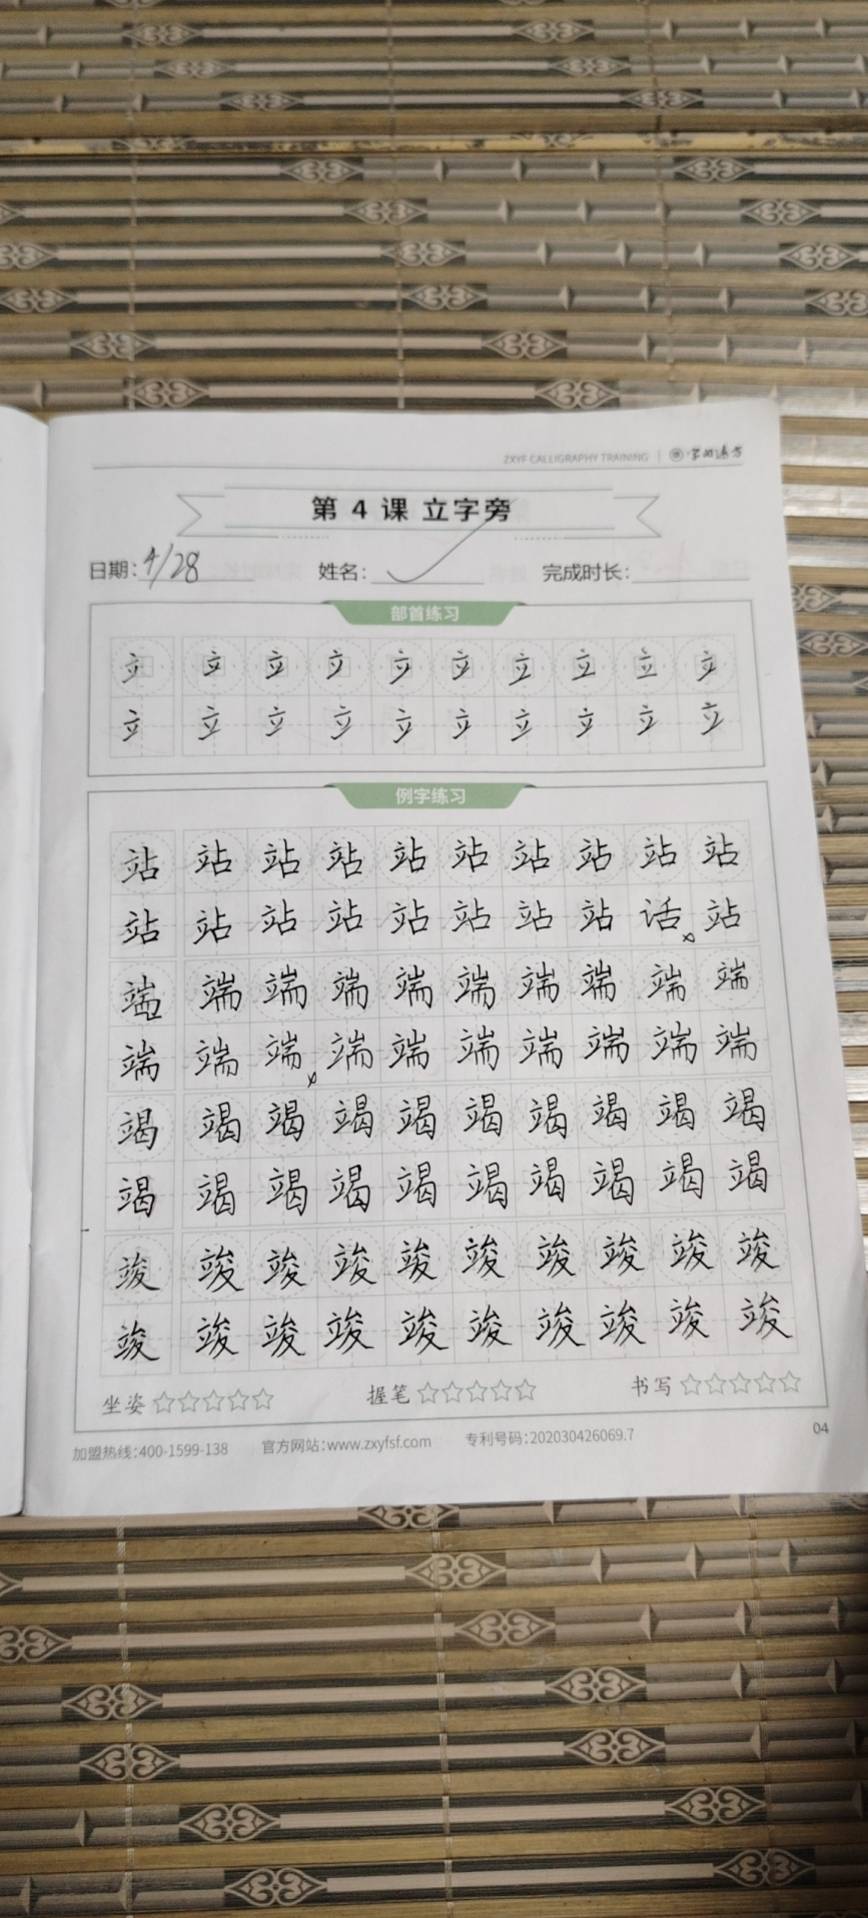 ZXYF CALLIGRAPHY TRAINING
第 4 课 立字旁
日期: 4/28 姓名: 完成时长:
部首练习
立 立 立 立 立 立 立 立 立 立
立 立 立 立 立 立 立 立 立 立
例字练习
站 站 站 站 站 站 站 站 站 站
站 站 站 站 站 站 站 站 话 站
端 端 端 端 端 端 端 端 端 端
端 端 端 端 端 端 端 端 端 端
竭 竭 竭 竭 竭 竭 竭 竭 竭 竭
竭 竭 竭 竭 竭 竭 竭 竭 竭 竭
竣 竣 竣 竣 竣 竣 竣 竣 竣 竣
竣 竣 竣 竣 竣 竣 竣 竣 竣 竣
坐姿☆☆☆☆☆ 握笔☆☆☆☆☆ 书写☆☆☆☆☆
加盟热线:400-1599-138 官方网站:www.zxyfsf.com 专利号码:202030426069.7 04